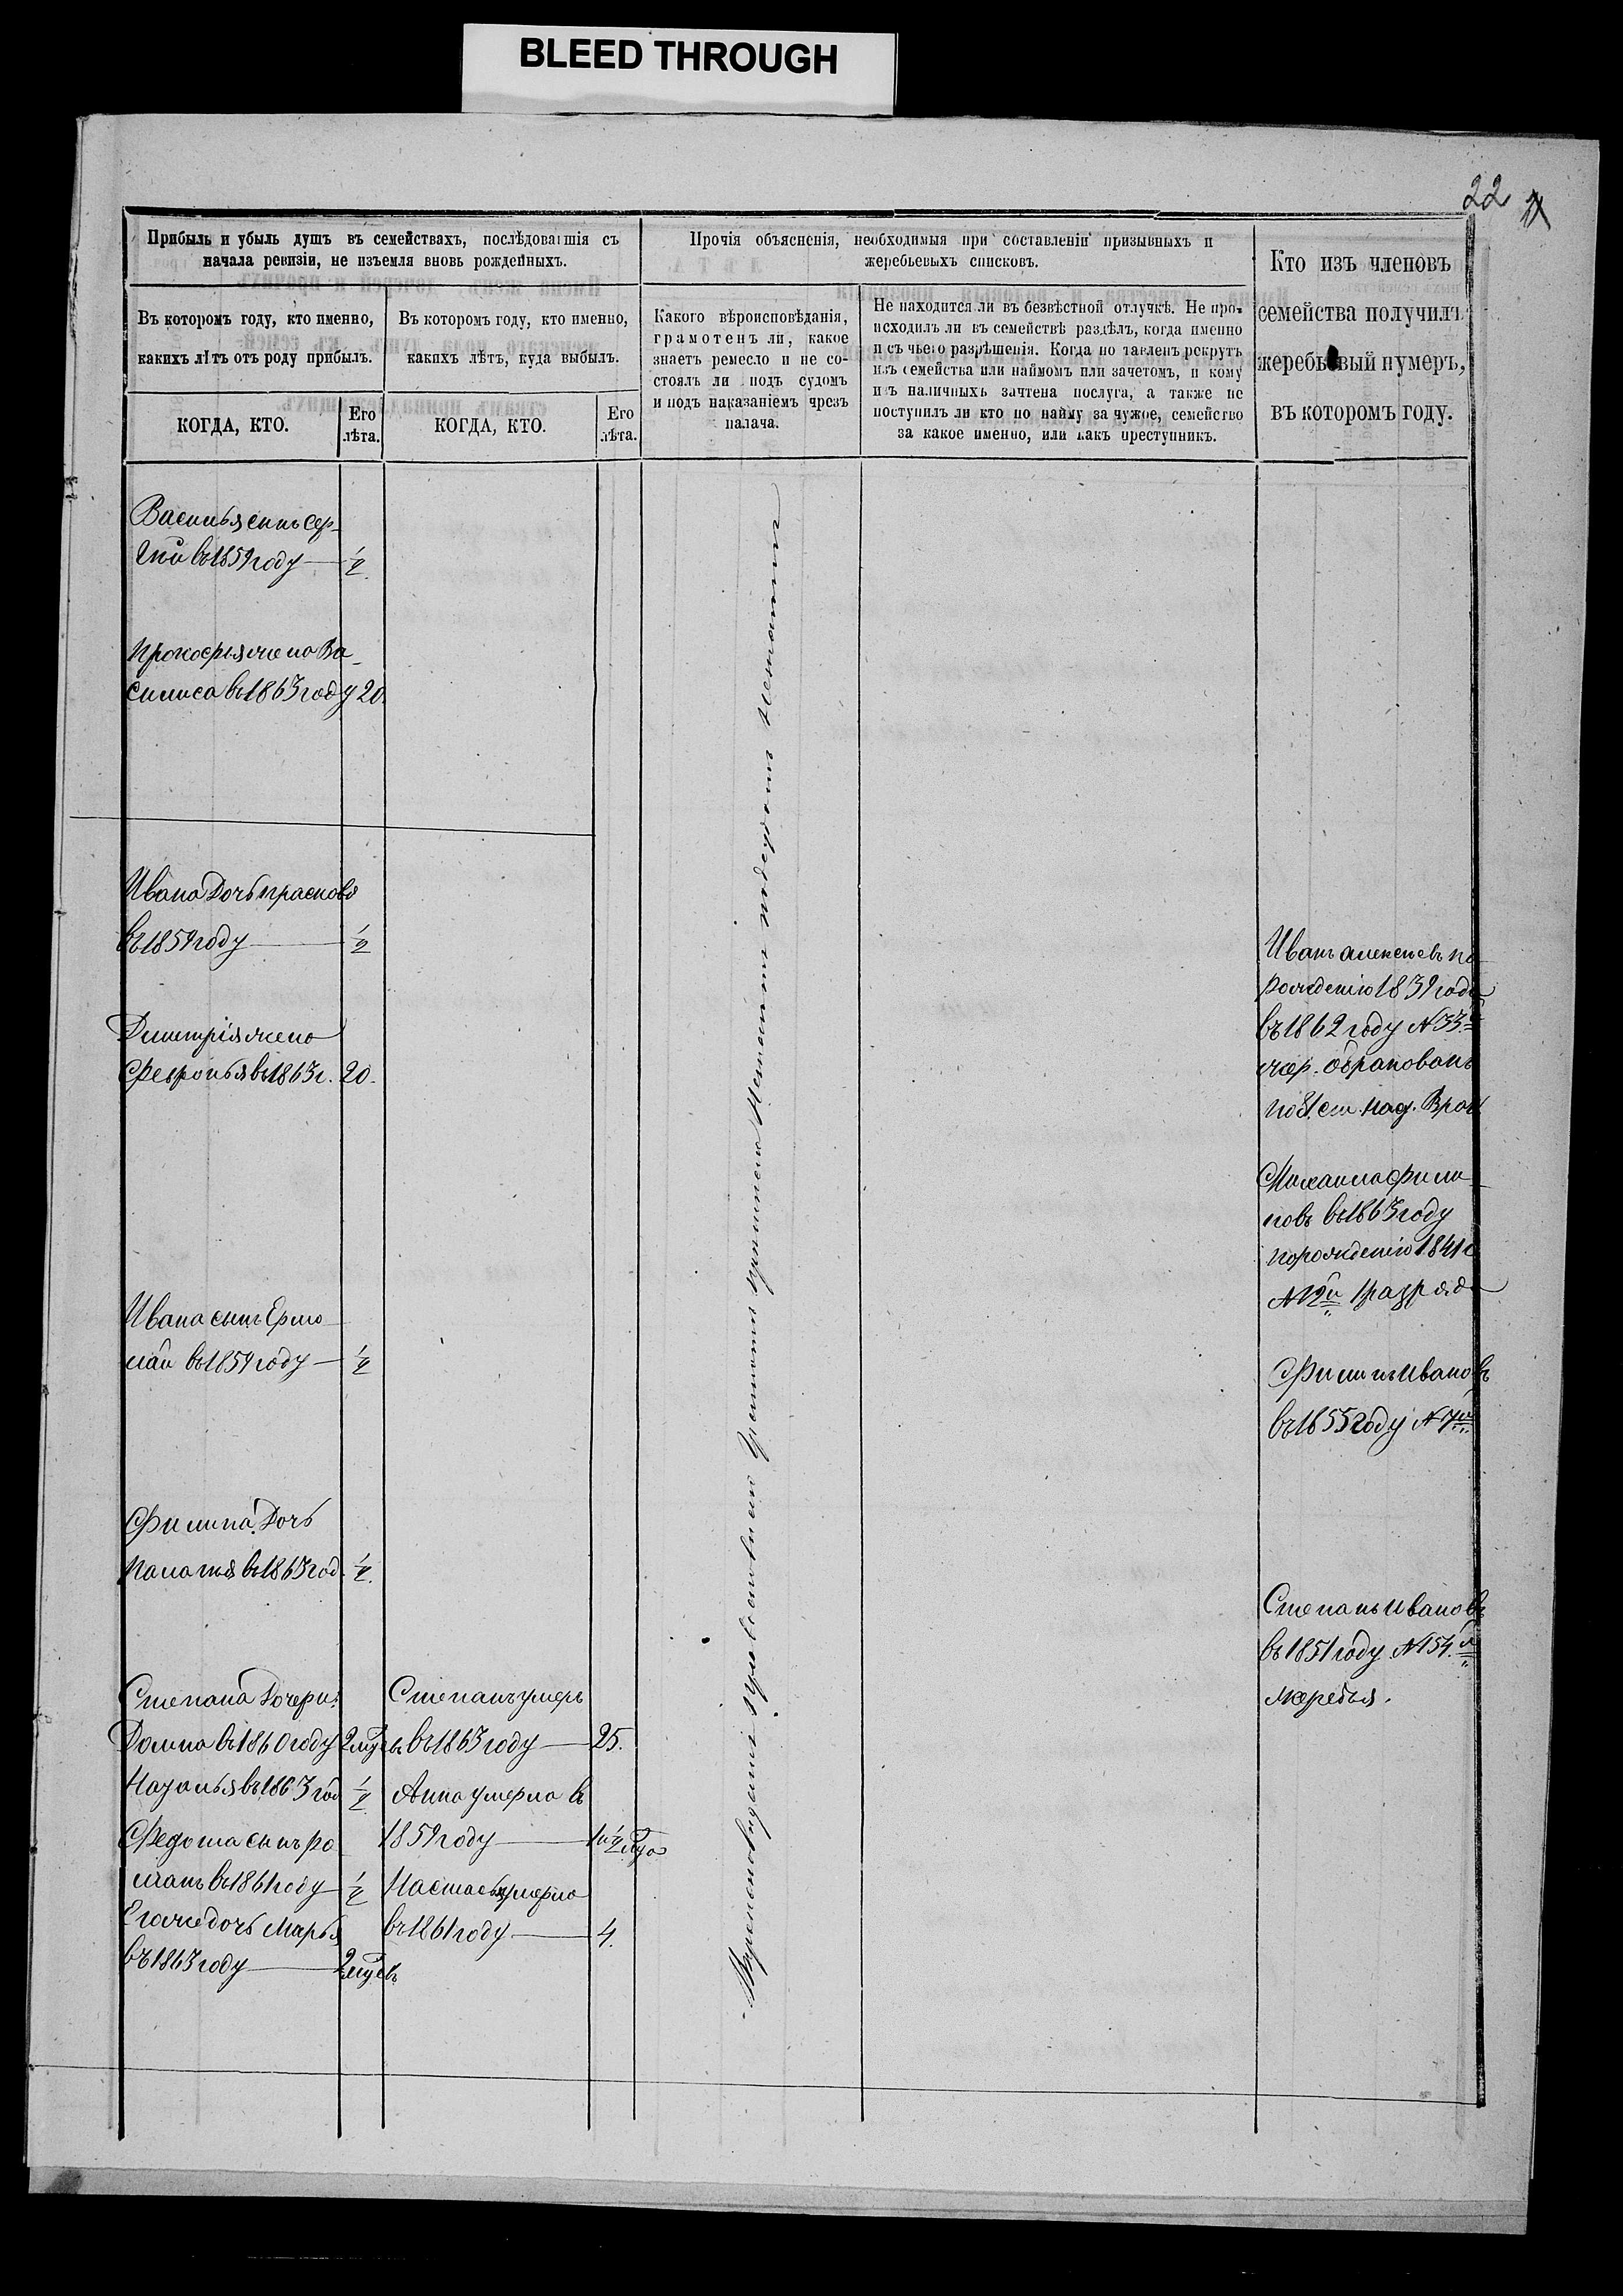 BLEED THROUGH
22
Прибыль и убыль душъ въ семействахъ, послѣдовавшія съ
начала ревизіи, не изъемля вновь рожденныхъ.
Въ которомъ году, кто именно,
какихъ лѣтъ отъ роду прибылъ.
КОГДА, КТО.
Его
лѣта.
Въ которомъ году, кто именно,
какихъ лѣтъ, куда выбылъ.
КОГДА, КТО.
Его
лѣта.
Прочія объясненія, необходимыя при составленіи призывныхъ и
жеребьевыхъ списковъ.
Какого вѣроисповѣданія,
грамотенъ ли, какое
знаетъ ремесло и не со-
стоялъ ли подъ судомъ
и подъ наказаніемъ чрезъ
палача.
Не находится ли въ безвѣстной отлучкѣ. Не про-
исходилъ ли въ семействѣ раздѣлъ, когда именно
и съ чьего разрѣшенія. Когда поставленъ рекрутъ
изъ семейства или наймомъ или зачетомъ, и кому
изъ наличныхъ зачтена послуга, а также не
поступилъ ли кто по найму за чужое, семейство
за какое именно, или какъ преступникъ.
Кто изъ членовъ
семейства получилъ
жеребьевый нумеръ,
въ которомъ году.
Василья сынъ Сер-
гѣй въ 1859 году — ½
Прокофья жена Ва-
силиса въ 1863 году 20.
Ивана дочь Прасковья
въ 1859 году — ½
Дмитрія жена
Февронья въ 1863 г. 20.
Ивана сынъ Ермо-
лай въ 1859 году — ½
Филипа дочь
Палагья въ 1863 год ½
Степана дочери:
Домна въ 1860 году 2 мѣс.
Наталья въ 1863 год ½
Федота сынъ Ро-
манъ въ 1861 году ½
Его же дочь Марья
въ 1863 году — 2 мѣс.
Степанъ умеръ
въ 1863 году — 25.
Анна умерла въ
1859 году — 1 и ½ года
Настасья умерла
въ 1861 году — 4.
Вѣроисповѣданія православнаго
Иванъ Алексѣевъ по
рожденію 1839 года
въ 1862 году №33й
жер. обракованъ
по
Михаила Фили-
повъ въ 1863 году
по рожденію 1841 г.
№12й 1 разряда
Филипъ Ивановъ
въ 1855 году №7й
Степанъ Ивановъ
въ 1851 году №154.й
жеребья.